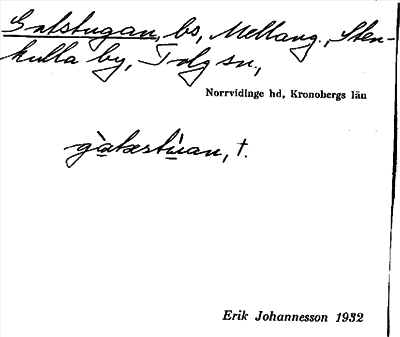 Gatstugan, bs, Mellang., Sten-
kulla by, Tolg sn.,
Norrvidinge hd, Kronobergs län
gàtæstùan, †.
Erik Johannesson 1932